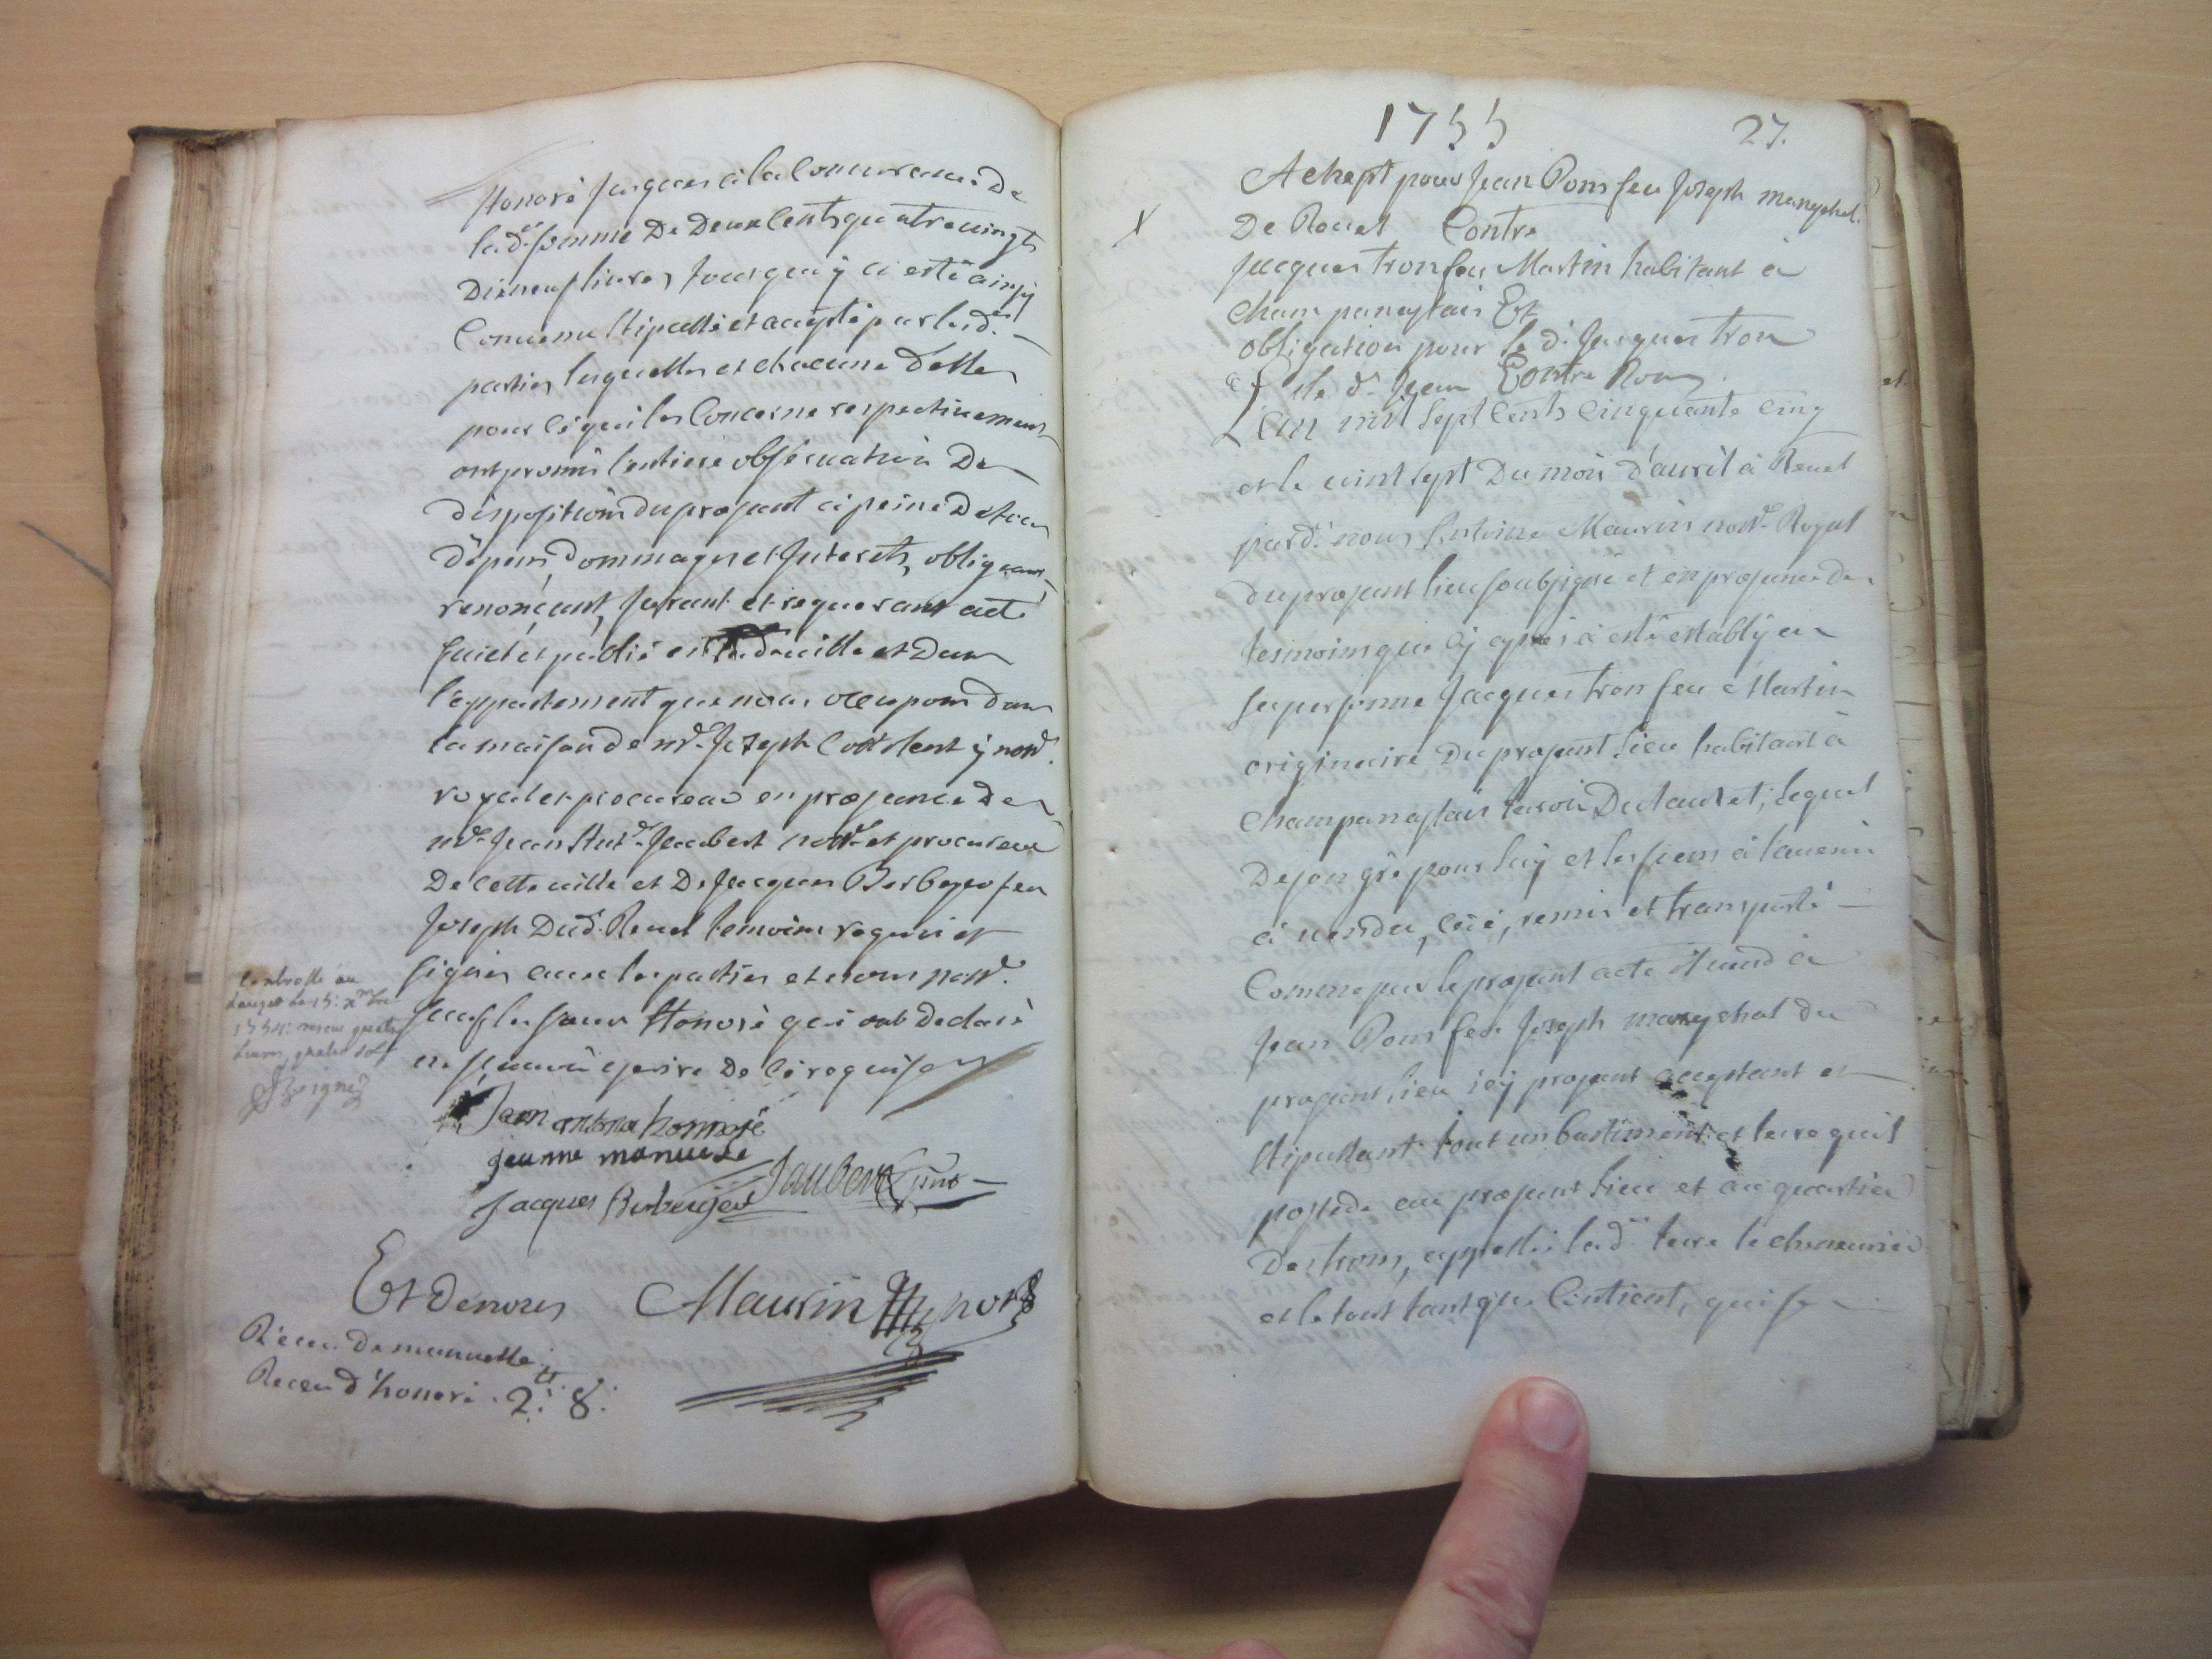 honoré jusques a la concurrance de
lad.e somme de deux cents quatre vingts
dixneuf livres jousqu'a y ci esté ainsy
convenu stipullé et accepté par lesd.
parties lesquelles et chacune d'elles
pour ce qui les concerne respectivement
ont promis l'entiere observation de
dispositions du prezant a peine de tous
depens, dommages et interets, obligeant
renonçant, jurant et requerant acte
fait et publié en lad. ville et dans
l'appartement que nous occupons dans
la maison de m.e Jozeph
royal et procureur en prezance de
m.e Jean Ant.e Jaubert not.e et procureur
de cette ville et de Jacques Berbeyer feu
Joseph dud. Revel temoins requis et
signés avec les parties et nous not.e
sauf les sieurs honoré qui ont declaré
ne sçavoir escrire de ce requis
controllé au
Lauzet le 15: xbre
1754: receu quatre
livres, quatre sols
Jean
jeanne manuele
Jacques Berbeyer Jaubert
Et de nous Maurin not.
Receu de manuelle
Receu d'honoré . 2: 8:
1755
27.
Achept pour Jean Pons feu Joseph mareychal
X
de Revel Contre
Jacques tron feu Martin habitant à
champanastais Et
obligation pour le d. Jacques tron
le d. Jean Contre Pons
L'an mil sept cents cinquante cinq
et le vint sept du mois d'avril à Revel
pard. nous Antoine Maurin not.e Royal
du prezant lieu soubsigné et en prezance de
tesmoins qui cy apres a esté estably en
sa personne Jacques tron feu Martin
originaire du prezant lieu habitant à
champanastais teroir du Lauzet, lequel
de son gré pour luy et les siens à l'avenir
a vendu, cédé, remis et transporté
comme par le prezant acte il vend à
Jean Pons feu Joseph mareychal du
prezant lieu icy prezant acceptant et
stipullant tout un bastiment et terre qu'il
possede au prezant lieu et au quartier
des trons, appellé lad. terre le chenevrier
et le tout tant que contient, qui se